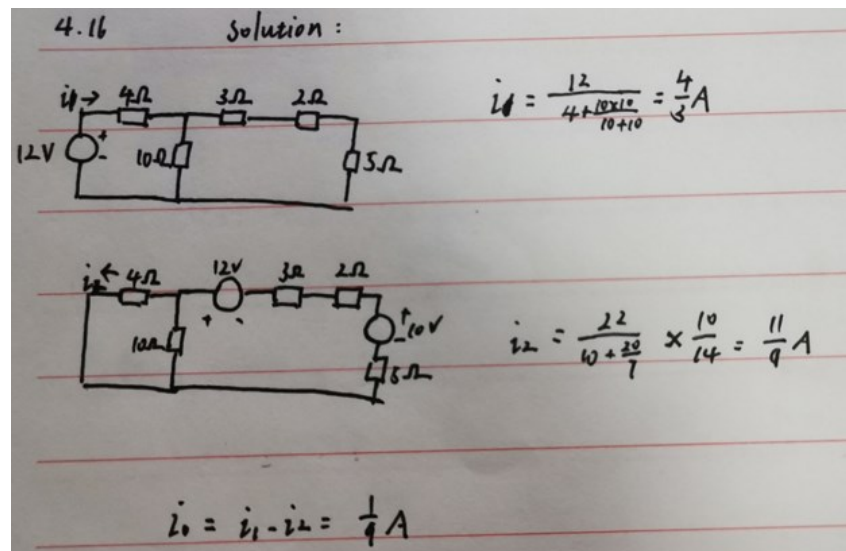 4.16 Solution:
i1→ 4Ω 3Ω 2Ω
12V + - 10Ω 5Ω
i1 = 12 / (4 + (10×10)/(10+10)) = 4/3 A
i2← 4Ω 12V 3Ω 2Ω
+ - + - 10V
10Ω 5Ω
i2 = 22 / (10 + 20/7) × 10/14 = 11/9 A
i0 = i1 - i2 = 1/9 A